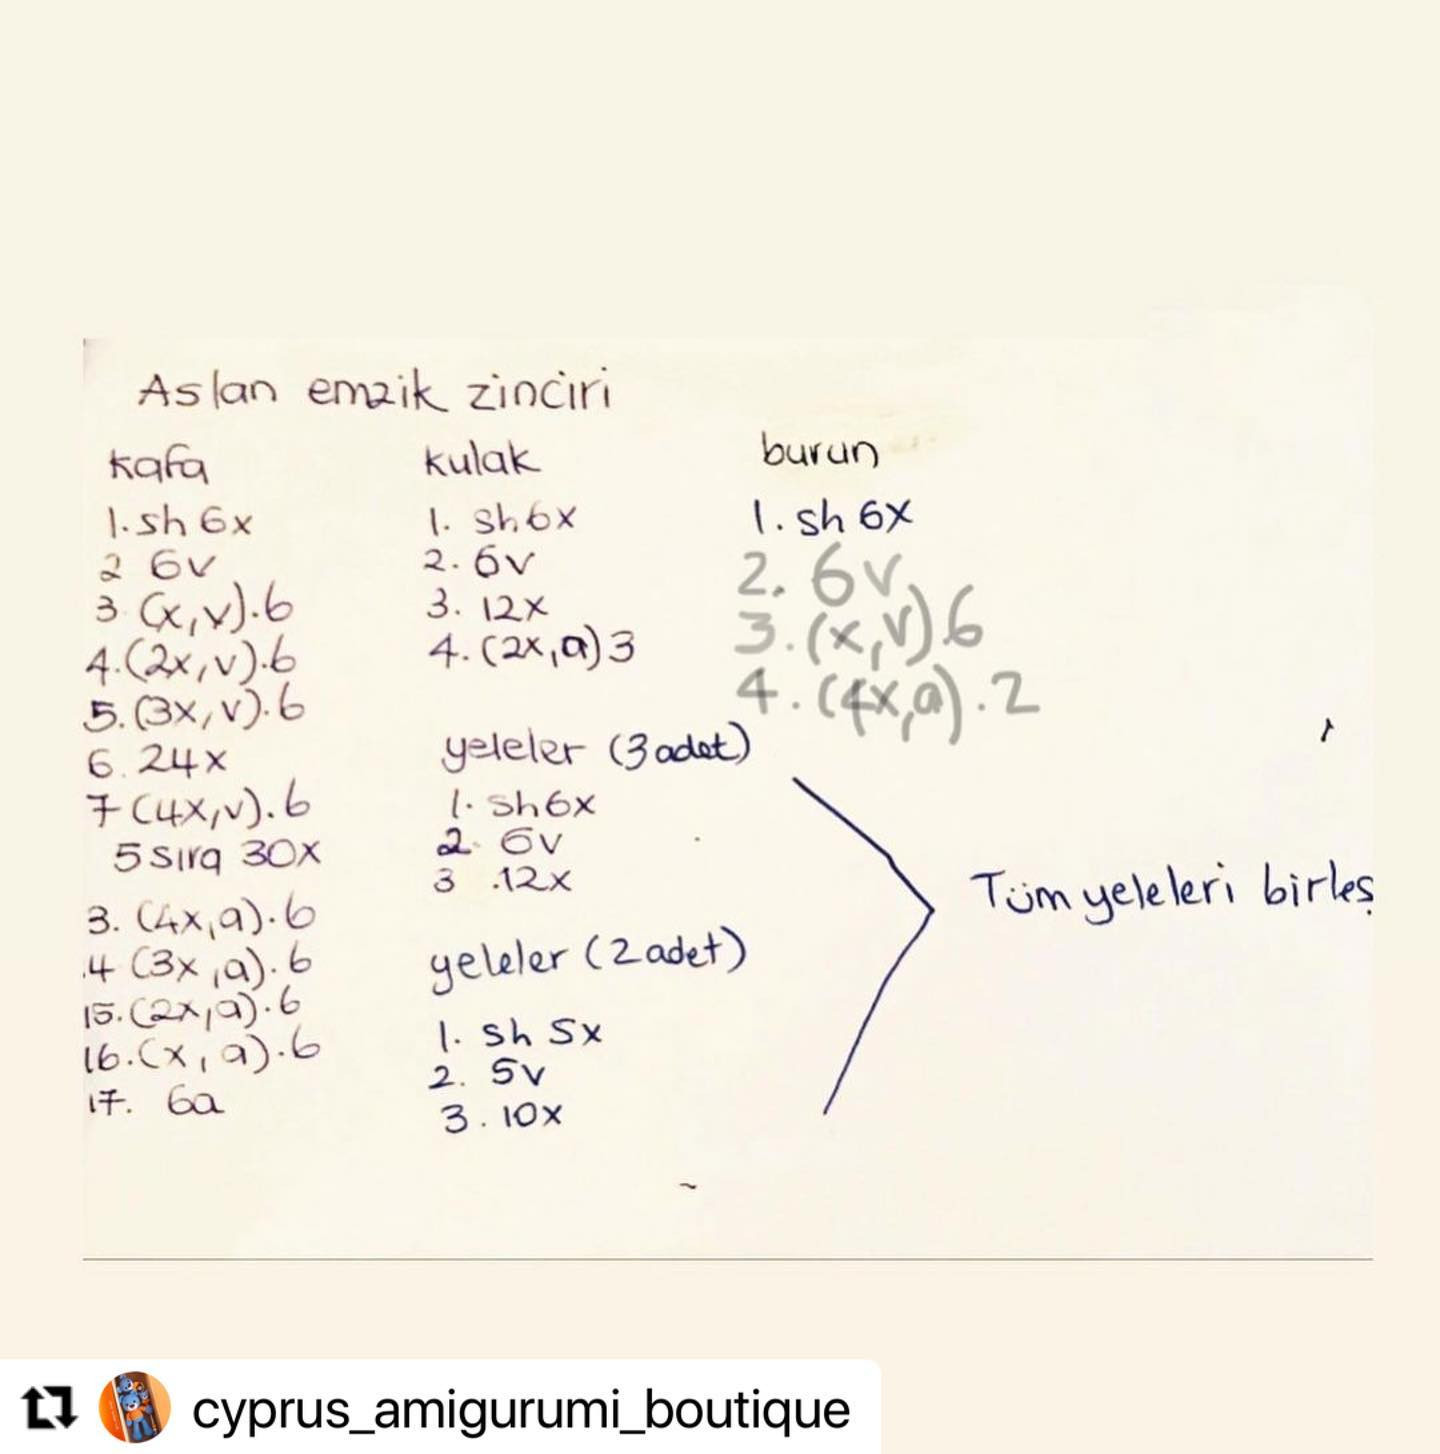 Aslan emzik zinciri
Kafa
1. sh 6x
2 6v
3. (x,v).6
4. (2x,v).6
5. (3x,v).6
6. 24x
7 (4x,v).6
5 sıra 30x
3. (4x,a).6
.4 (3x,a).6
15. (2x,a).6
16. (x,a).6
17. 6a
kulak
1. sh 6x
2. 6v
3. 12x
4. (2x,a)3
yeleler (3 adet)
1. sh 6x
2. 6v
3 .12x
yeleler (2 adet)
1. sh 5x
2. 5v
3. 10x
burun
1. sh 6x
2. 6v
3. (x,v)6
4. (4x,a).2
Tüm yeleleri birleş
cyprus_amigurumi_boutique